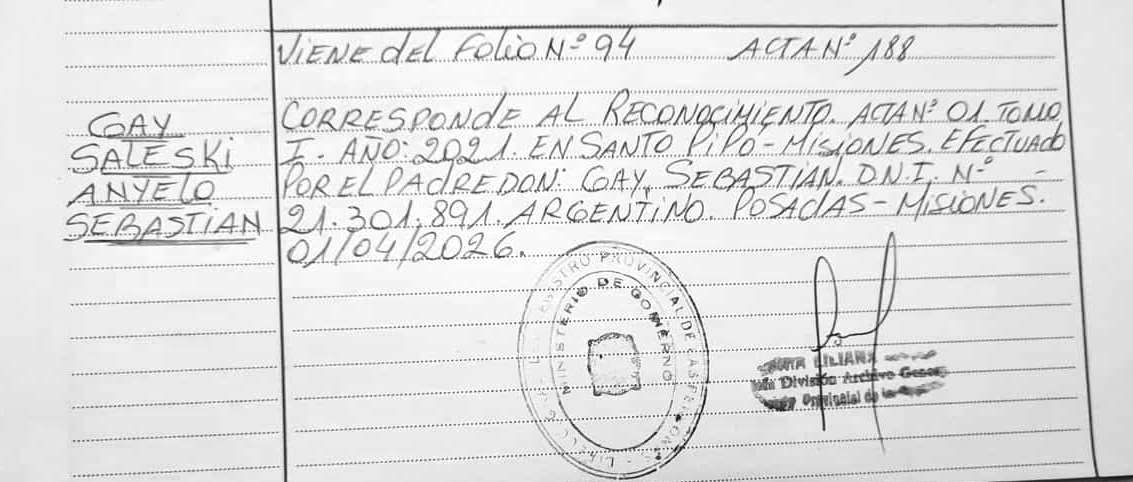 VIENE del Folio Nº 94 ACTA Nº 188
GAY
SALESKi
ANYELO
SEBASTIAN
CORRESPONdE AL RECONOCIMIENTO. ACTA Nº 01. TOMO
I. AÑO: 2021. EN SANTO PiPÓ-MISIONES. EFECTUAdO
POR EL PAdRE DON: GAY, SEBASTIAN. D.N.I. Nº -
21.301.891. ARGENTINO. POSADAS-MISIONES.
01/04/2026.
REGISTRO PROVINCIAL DE LAS PERSONAS
MINISTERIO DE GOBIERNO
LILIANA
División Archivo
Provincial de las